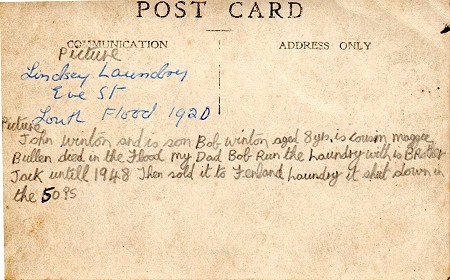 POST CARD
COMMUNICATION
ADDRESS ONLY
Picture
Lindsey Laundry
Eve St
Louth Flood 1920
Picture
John winton and is son Bob winton aged 8 yrs. is cousin maggee
Bullen died in the Flood my Dad Bob Run the Laundry with is BRother
Jack untill 1948 Then sold it to Fenland Laundry it shut down in
the 50.ps